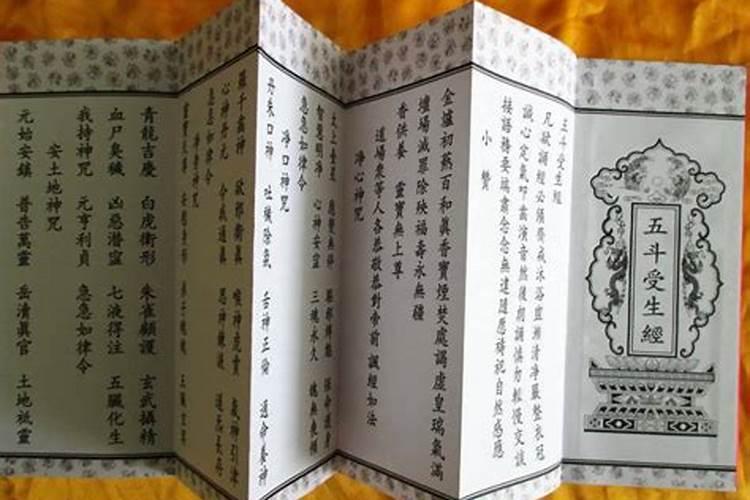 五斗受生經
五斗受生經
凡欲誦經必須齋戒沐浴盥漱清淨嚴整衣冠
誠心定氣叩齒演音然後朗誦慎勿輕慢交談
接語務要端肅念念無違隨愿禱祀自然感應
小讚
金爐初爇百和真香寶煙焚處謁虛皇瑞氣滿
壇場滅罪除殃福壽永無疆
香供養 靈寶無上尊
道場眾等人各恭敬恭對帝前 誦經如法
淨心神咒
太上臺星 應變無停 驅邪縛魅 保命護身
智慧明淨 心神安寧 三魂永久 魄無喪傾
急急如律令
淨口神咒
丹朱口神 吐穢除氛 舌神正倫 通命養神
羅千齒神 卻邪衛真 喉神虎賁 氣神引津
心神丹元 令我通真 思神鍊液 道炁長存
急急如律令
淨身神咒
靈寶天尊 安慰身形 弟子魂魄 五臟玄冥
青龍吉慶 白虎衛形 朱雀顧護 玄武攝精
血尸臭穢 凶惡潛寧 七液得注 五臟化生
我持神咒 元亨利貞 急急如律令
安土地神咒
元始安鎮 普告萬靈 岳瀆真官 土地祇靈